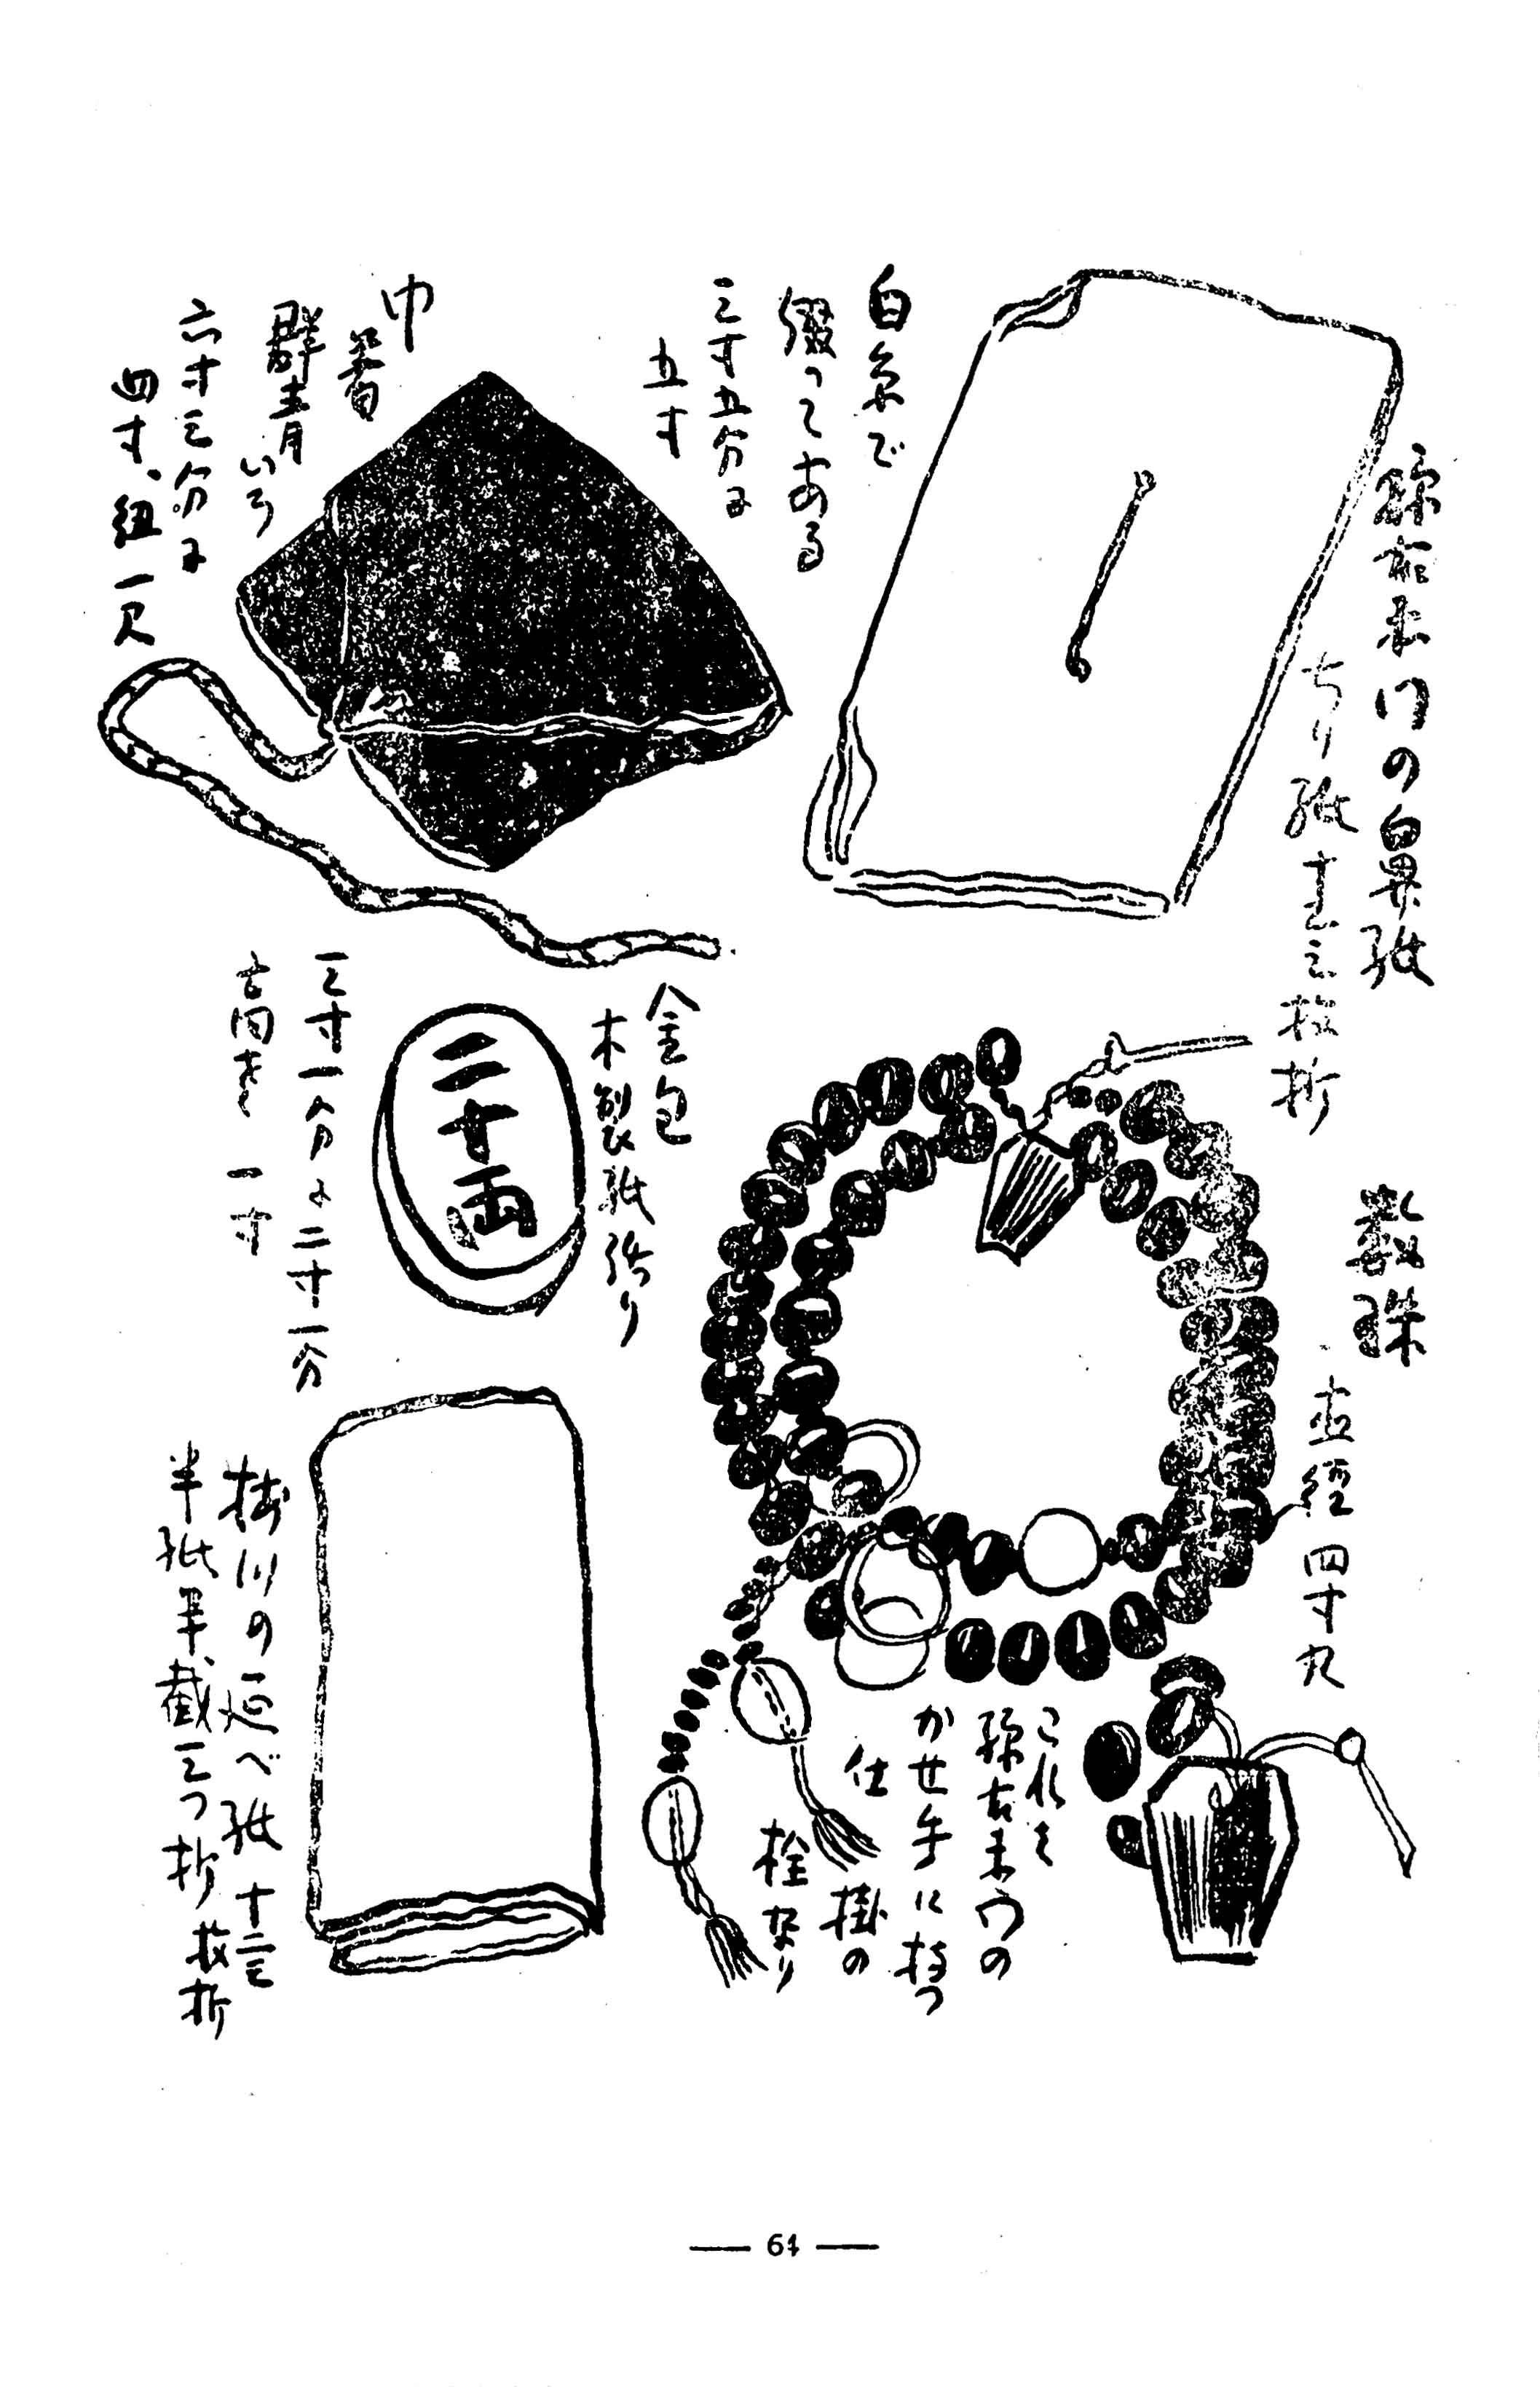 弥左ヱ門の鼻紙
ちり紙十二三枚折
白糸で
綴つてある
三寸五分に
五寸
巾着
群青いろ
六寸三分に
四寸、紐一尺
数珠
直径四寸九
これを
かせ手に持つ
仕掛の
栓なり
金包
木製紙張り
二十両
三寸一分に二寸一分
高さ 一寸
掛川の延べ紙 十二三枚折
半紙半截三つ折
— 64 —